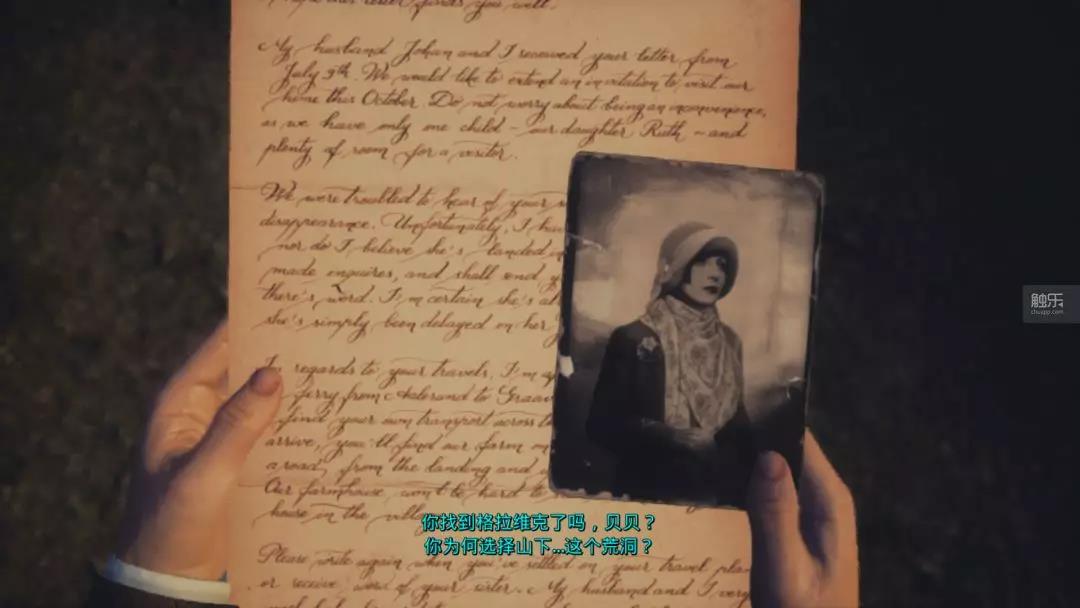 hope this letter finds you well.
My husband Johan and I received your letter from
July 9th. We would like to extend an invitation to visit our
home this October. Do not worry about being an inconvenience,
as we have only one child - our daughter Ruth - and
plenty of room for a visitor.
We were troubled to hear of your
disappearance. Unfortunately, I
nor do I believe she's landed
made enquires, and shall send
there's word. I'm certain she's
she's simply been delayed on her
In regards to your travels, I'm
ferry from to
find your own transport across
arrive, you'll find our farm
a road, from the landing and
Our farmhouse won't be hard to
house in the
Please write again when you've settled on your travel
or receive word of your sister. My husband and I very
触乐
chuapp.com
你找到格拉维克了吗，贝贝？
你为何选择山下...这个荒洞？